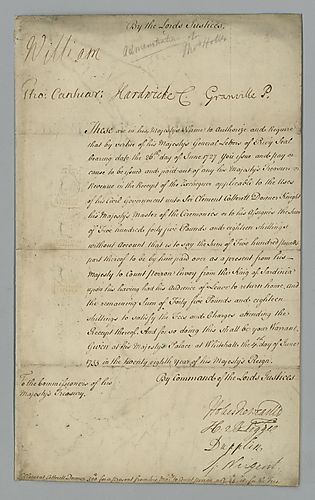 By the Lords Justices,
William
Administration
Tho: Cantuar: Hardwicke C Granville P.
These are in his Majesty's Name to Authorize and Require
that by virtue of his Majesty's General Letters of Privy Seal
bearing date the 26th day of June 1727 You Issue and pay or
cause to be Issued and paid out of any his Majesty's Treasure or
Revenue in the Receipt of the Exchequer applicable to the Uses
of his Civil Government unto Sir Clement Cotterell Dormer Knight
his Majesty's Master of the Ceremonies or to his Assignes the Sum
of Two hundred forty five Pounds and eighteen Shillings
without Account that is to say the Sum of Two hundred pounds
part thereof to be by him paid over as a present from his
Majesty to Count Perron Envoy from the King of Sardinia
upon his having had his Audience of Leave to return home, and
the remaining Sum of Forty five Pounds and eighteen
shillings to satisfy the Fees and Charges attending the
Receipt thereof. And for so doing this shall be your Warrant.
Given at his Majesty's Palace at Whitehall the day of June
1755 in the twenty eighth Year of his Majesty's Reign.
To the Commissioners of his
Majesty's Treasury.
By Command of the Lords Justices
Holles Newcastle
H Legge
Dupplin
Nugent
Clement Cotterell Dormer for a present from his